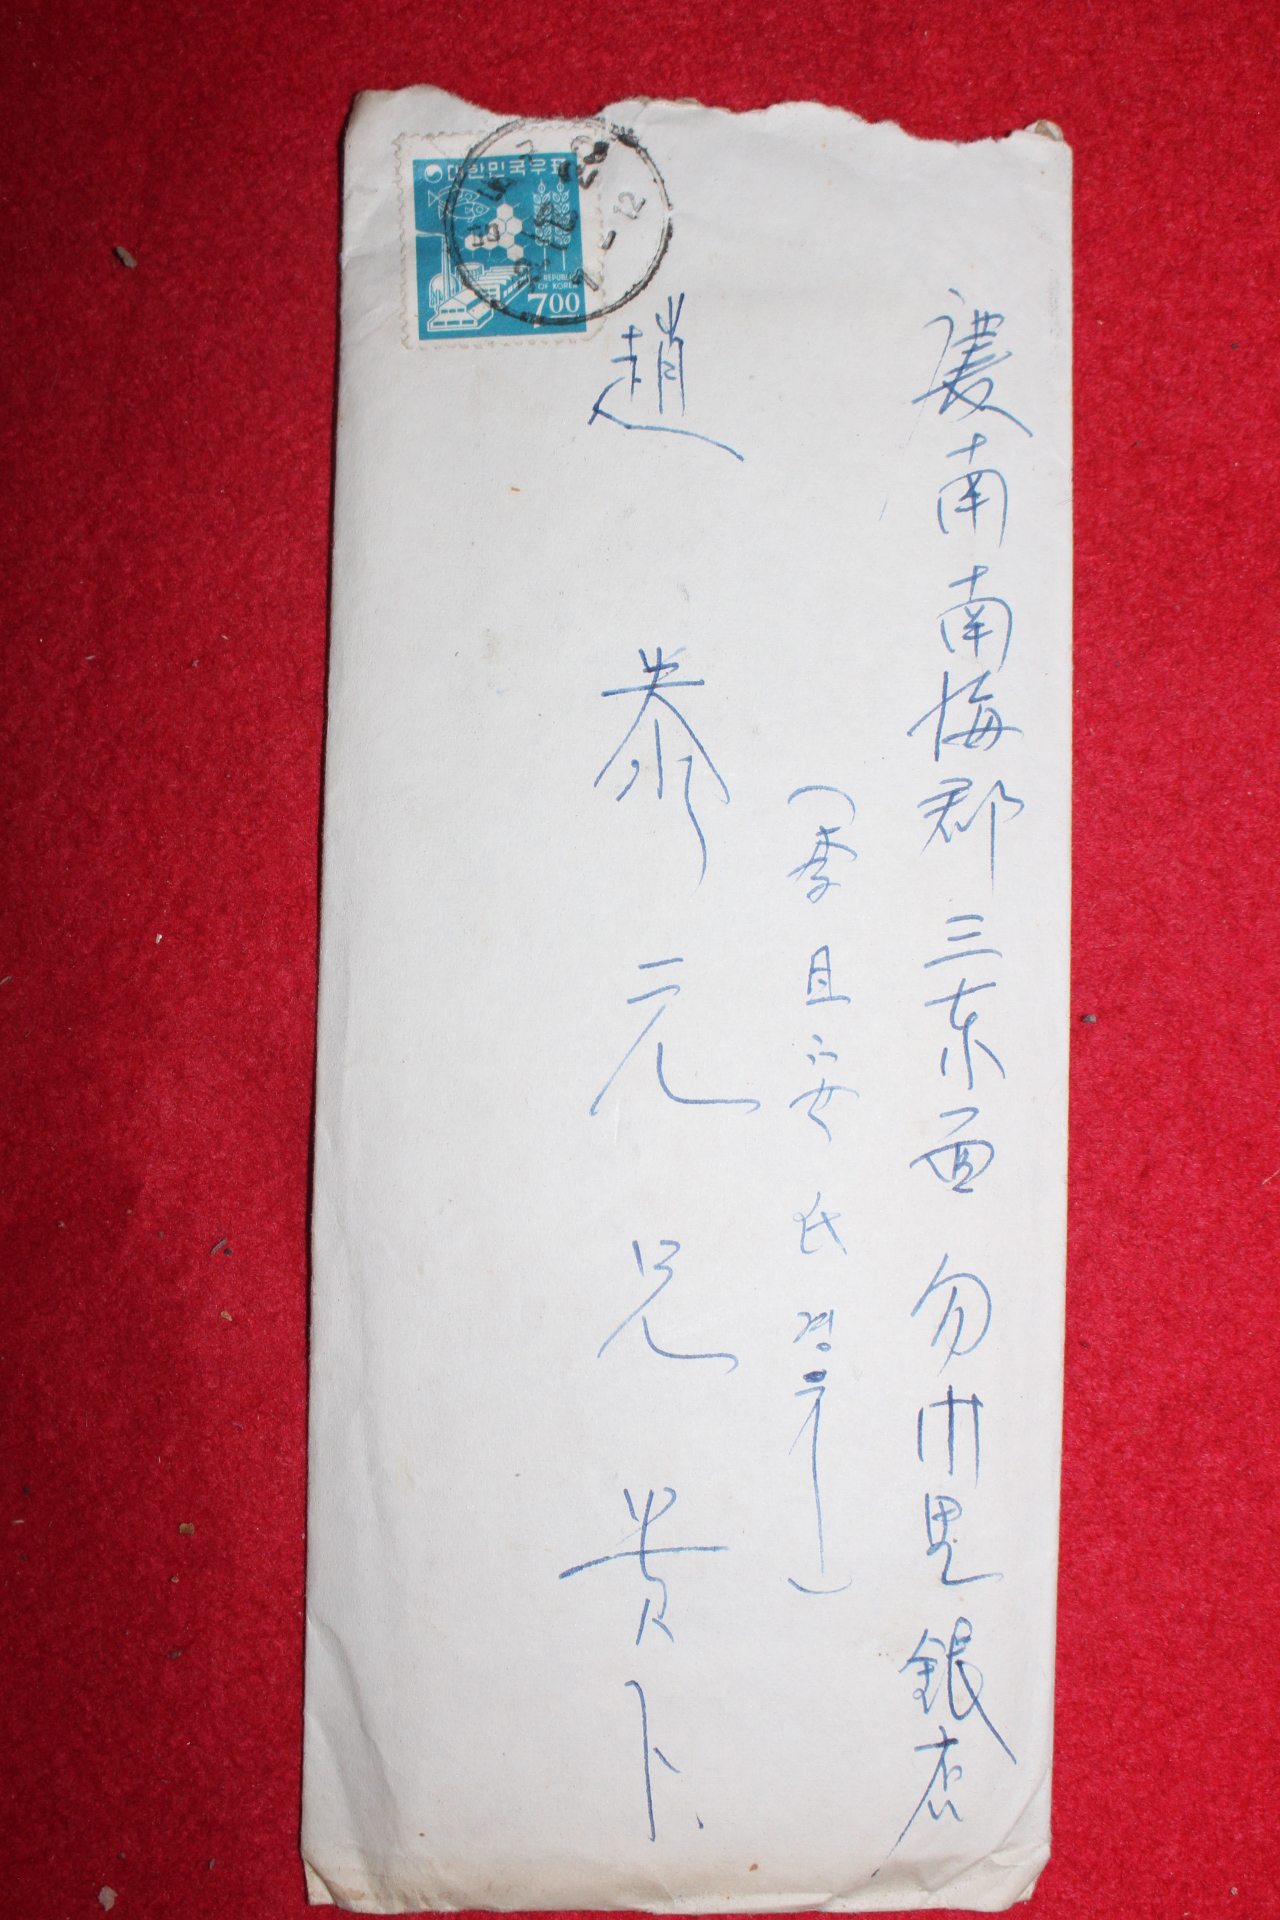 대한민국우표
REPUBLIC
OF KOREA
700
慶南南海郡三东面勿巾里銀店
(李且安氏경유)
趙泰元兄貴下